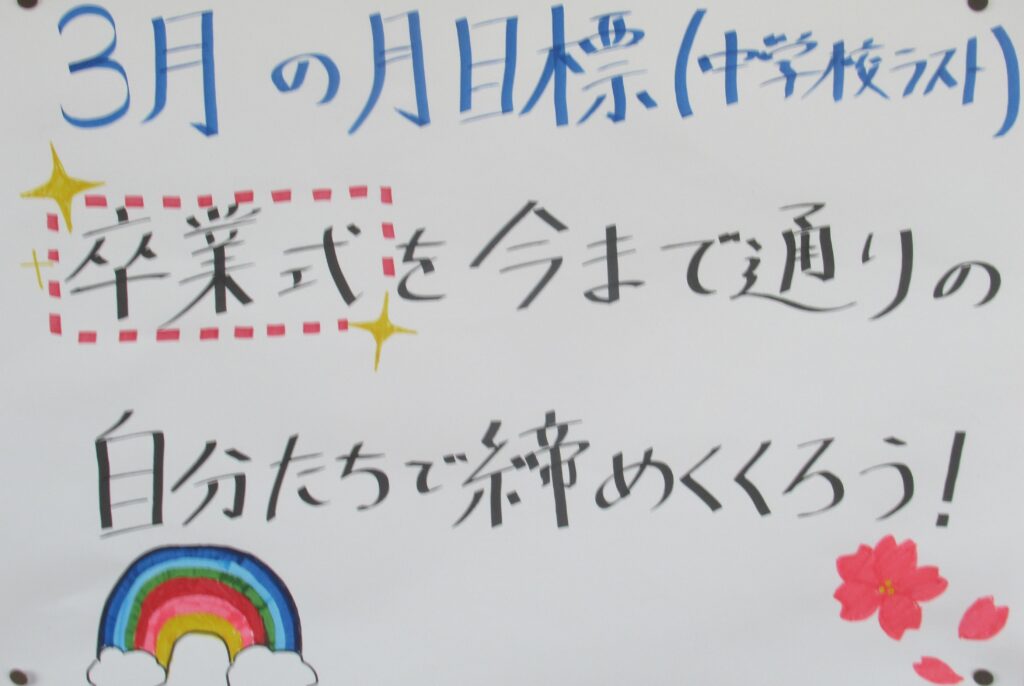 3月の月目標(中学校ラスト)
卒業式を今まで通りの
自分たちで締めくくろう!